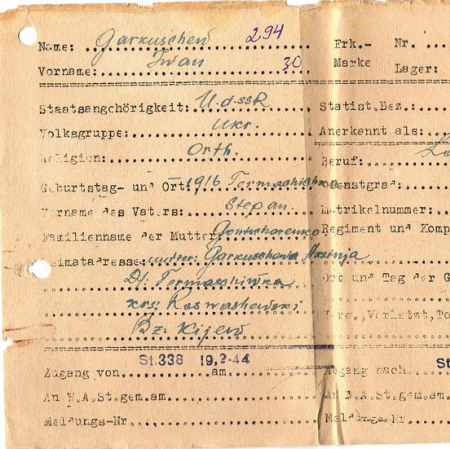 Name: Garkuschew 294 Erk.- Nr.
Vorname: Iwan 30 Marke Lager:
Staatsangehörigkeit: U.d.SSR Statist.Bez.:
Volksgruppe: Ukr. Anerkannt als:
Religion: Orth. Beruf:
Geburtstag- und Ort: 1916 Dienstgrad:
Vorname des Vaters: Stepan. Matrikelnummer:
Familienname der Mutter: Gontscharenko Regiment und Komp
Heimatadresse: Ort und Tag der G
Df. Termachiwka
Verw., Verletzt, To
Bz: Kijew
St.338 19.2-44 St
Zugang von am. nach
An W.A.St.gem.am. An W.A.St.gem.am.
Meldungs-Nr Nr.